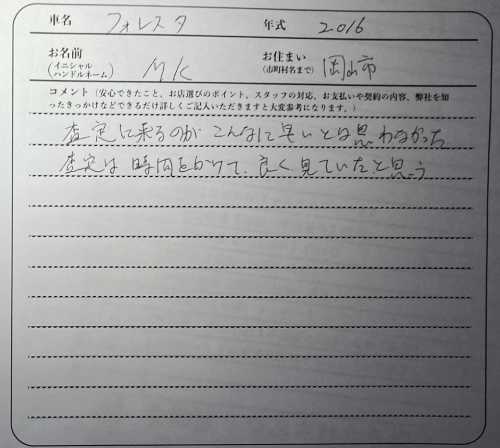 車名 フォレスタ 年式 2016
お名前 (イニシャル ハンドルネーム) MK お住まい (市町村名まで) 岡山市
コメント（安心できたこと、お店選びのポイント、スタッフの対応、お支払いや契約の内容、弊社を知
ったきっかけなどできるだけ詳しくご記入いただきますと大変参考になります。）
査定に来るのがこんなに早いとは思わなかった
査定は時間をかけて、良く見ていたと思う